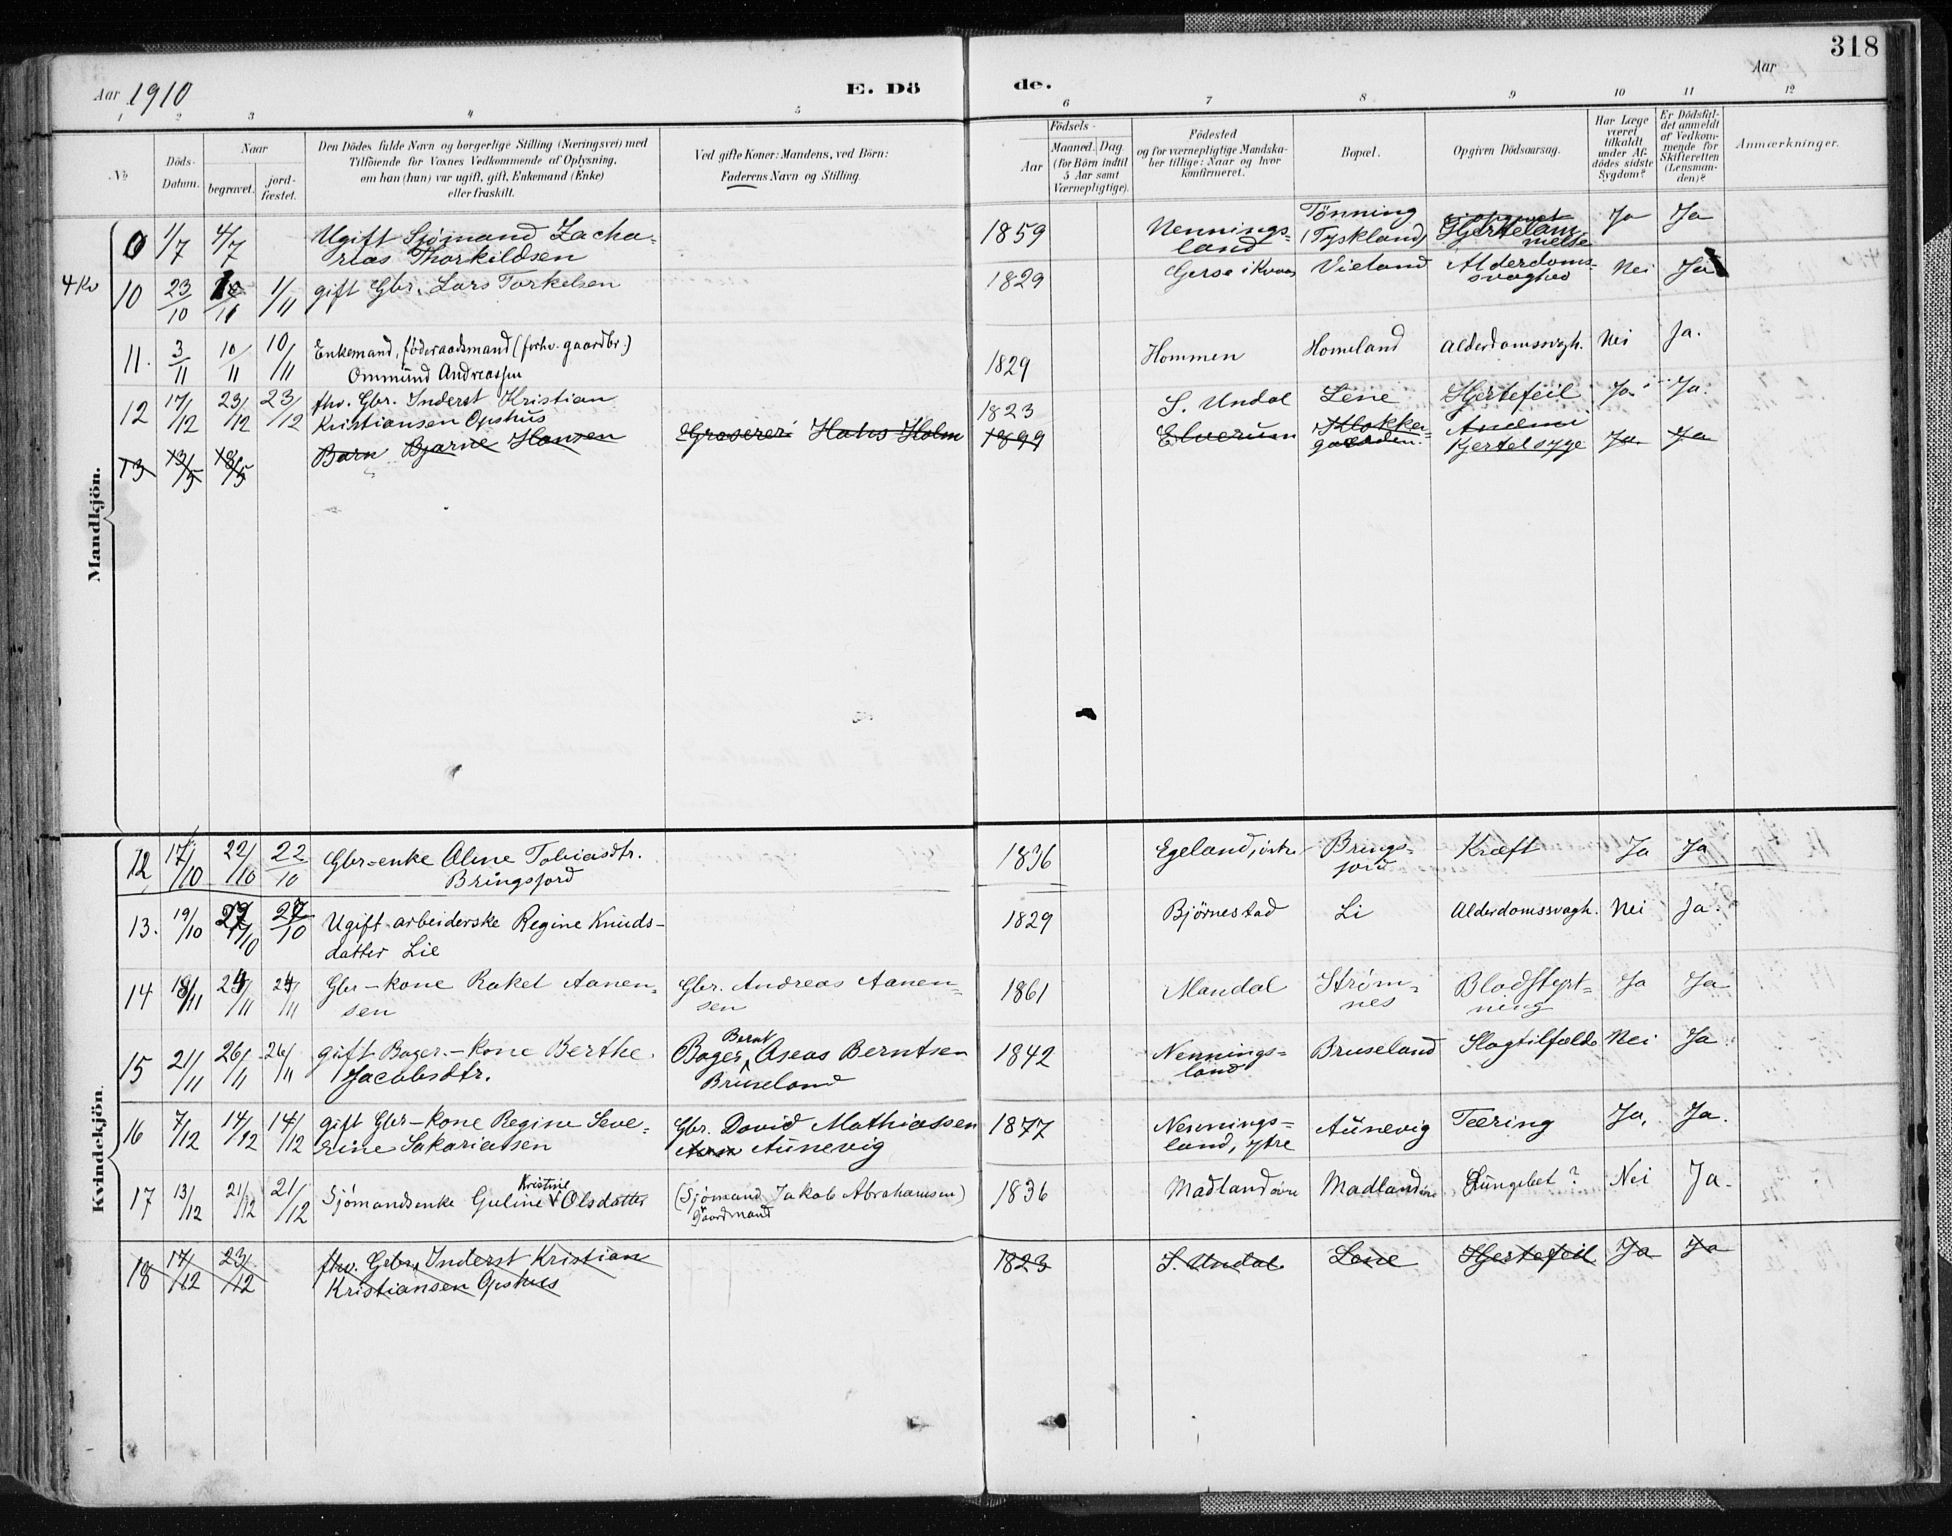 318
Aar 1910 E. Dö de. Aar
1 2 3 4 5 6 7 8 9 10 11 12
No
Döds-Datum.
Naar
begravet. jord-fæstet.
Den Dödes fulde Navn og borgerlige Stilling (Næringsvei) med
Tilföiende for Voxnes Vedkommende af Oplysning,
om han (hun) var ugift, gift, Enkemand (Enke)
eller fraskilt.
Ved gifte Koner: Mandens, ved Börn:
Faderens Navn og Stilling.
Födsels-
Aar
Maaned. Dag
(for Börn indtil
5 Aar samt
Værnepligtige).
Födested
og for værnepligtige Mandska-
ber tillige: Naar og hvor
konfirmeret.
Bopæl.
Opgiven Dödsaarsag.
Har Læge
været
tilkaldt
under Af-
dödes sidste
Sygdom?
Er Dödsfal-
det anmeldt
af Vedkom-
mende for
Skifteretten
(Lensman-
den)?
Anmærkninger.
Mandkjön.
1/7 4/7 Ugift Sjömand Zacha-
rias Thorkildsen 1859 Nennings-
land Tönning
(Tyskland) Hjertelam-
melse Ja Ja
10 23/10 1/11 gift Gbr. Lars Torkelsen 1829 Gerse i Kvaas Vieland Alderdoms-
svaghed Nei Ja
11. 3/11 10/11 10/11 Enkemand, föderaadsmand (forhv. gaardbr.)
Ommund Andreassen 1829 Hommen Homeland Alderdomssvagh. Nei Ja.
12 17/12 23/12 23/12 fhv. Gbr. Inderst Kristian
Kristiansen Opshus 1823 S. Undal Lene Hjertefeil Ja Ja.
13 13/5 18/5 Barn Bjarne Hansen Grosserer Hans Holm 1899 Elverum Klokker-
gaarden. Anæmi
Kjertelsyge Ja Ja
Kvindekjön
12 17/10 22/10 22/10 Gbr-enke Aline Tobiasdtr.
Bringsjord 1836 Egeland, östre Brings-
jord Kræft Ja Ja
13. 19/10 27/10 27/10 Ugift arbeiderske Regine Knuds-
datter Lie 1829 Björnestad Li Alderdomssvagh. Nei Ja.
14 18/11 24/11 24/11 Gbr-kone Rakel Aanen-
sen Gbr. Andreas Aanen-
sen 1861 Mandal Ström-
nes Blodstyrt-
ning Ja Ja
15 21/11 26/11 26/11 gift Bager-kone Berthe
Jacobsdtr. Bager Bernt Aseas Berntsen
Bruseland 1842 Nennings-
land Bruseland Slagtilfælde Nei Ja
16 7/12 14/12 14/12 gift Gbr-kone Regine Seve-
rine Sakariassen Gbr. David Mathiassen
Aunevig 1877 Nennings-
land, ytre Aunevig Tæring Ja, Ja.
17 13/12 21/12 21/12 Sjömandsenke Guline Kristine Olsdatter (Sjömand Jakob Abrahamsen)
Gaardmand 1836 Madland övre Madland övre Lungebet? Nei Ja.
18 17/12 23/12 fhv. Gbr. Inderst Kristian
Kristiansen Opshus 1823 S. Undal Lene Hjertefeil Ja Ja